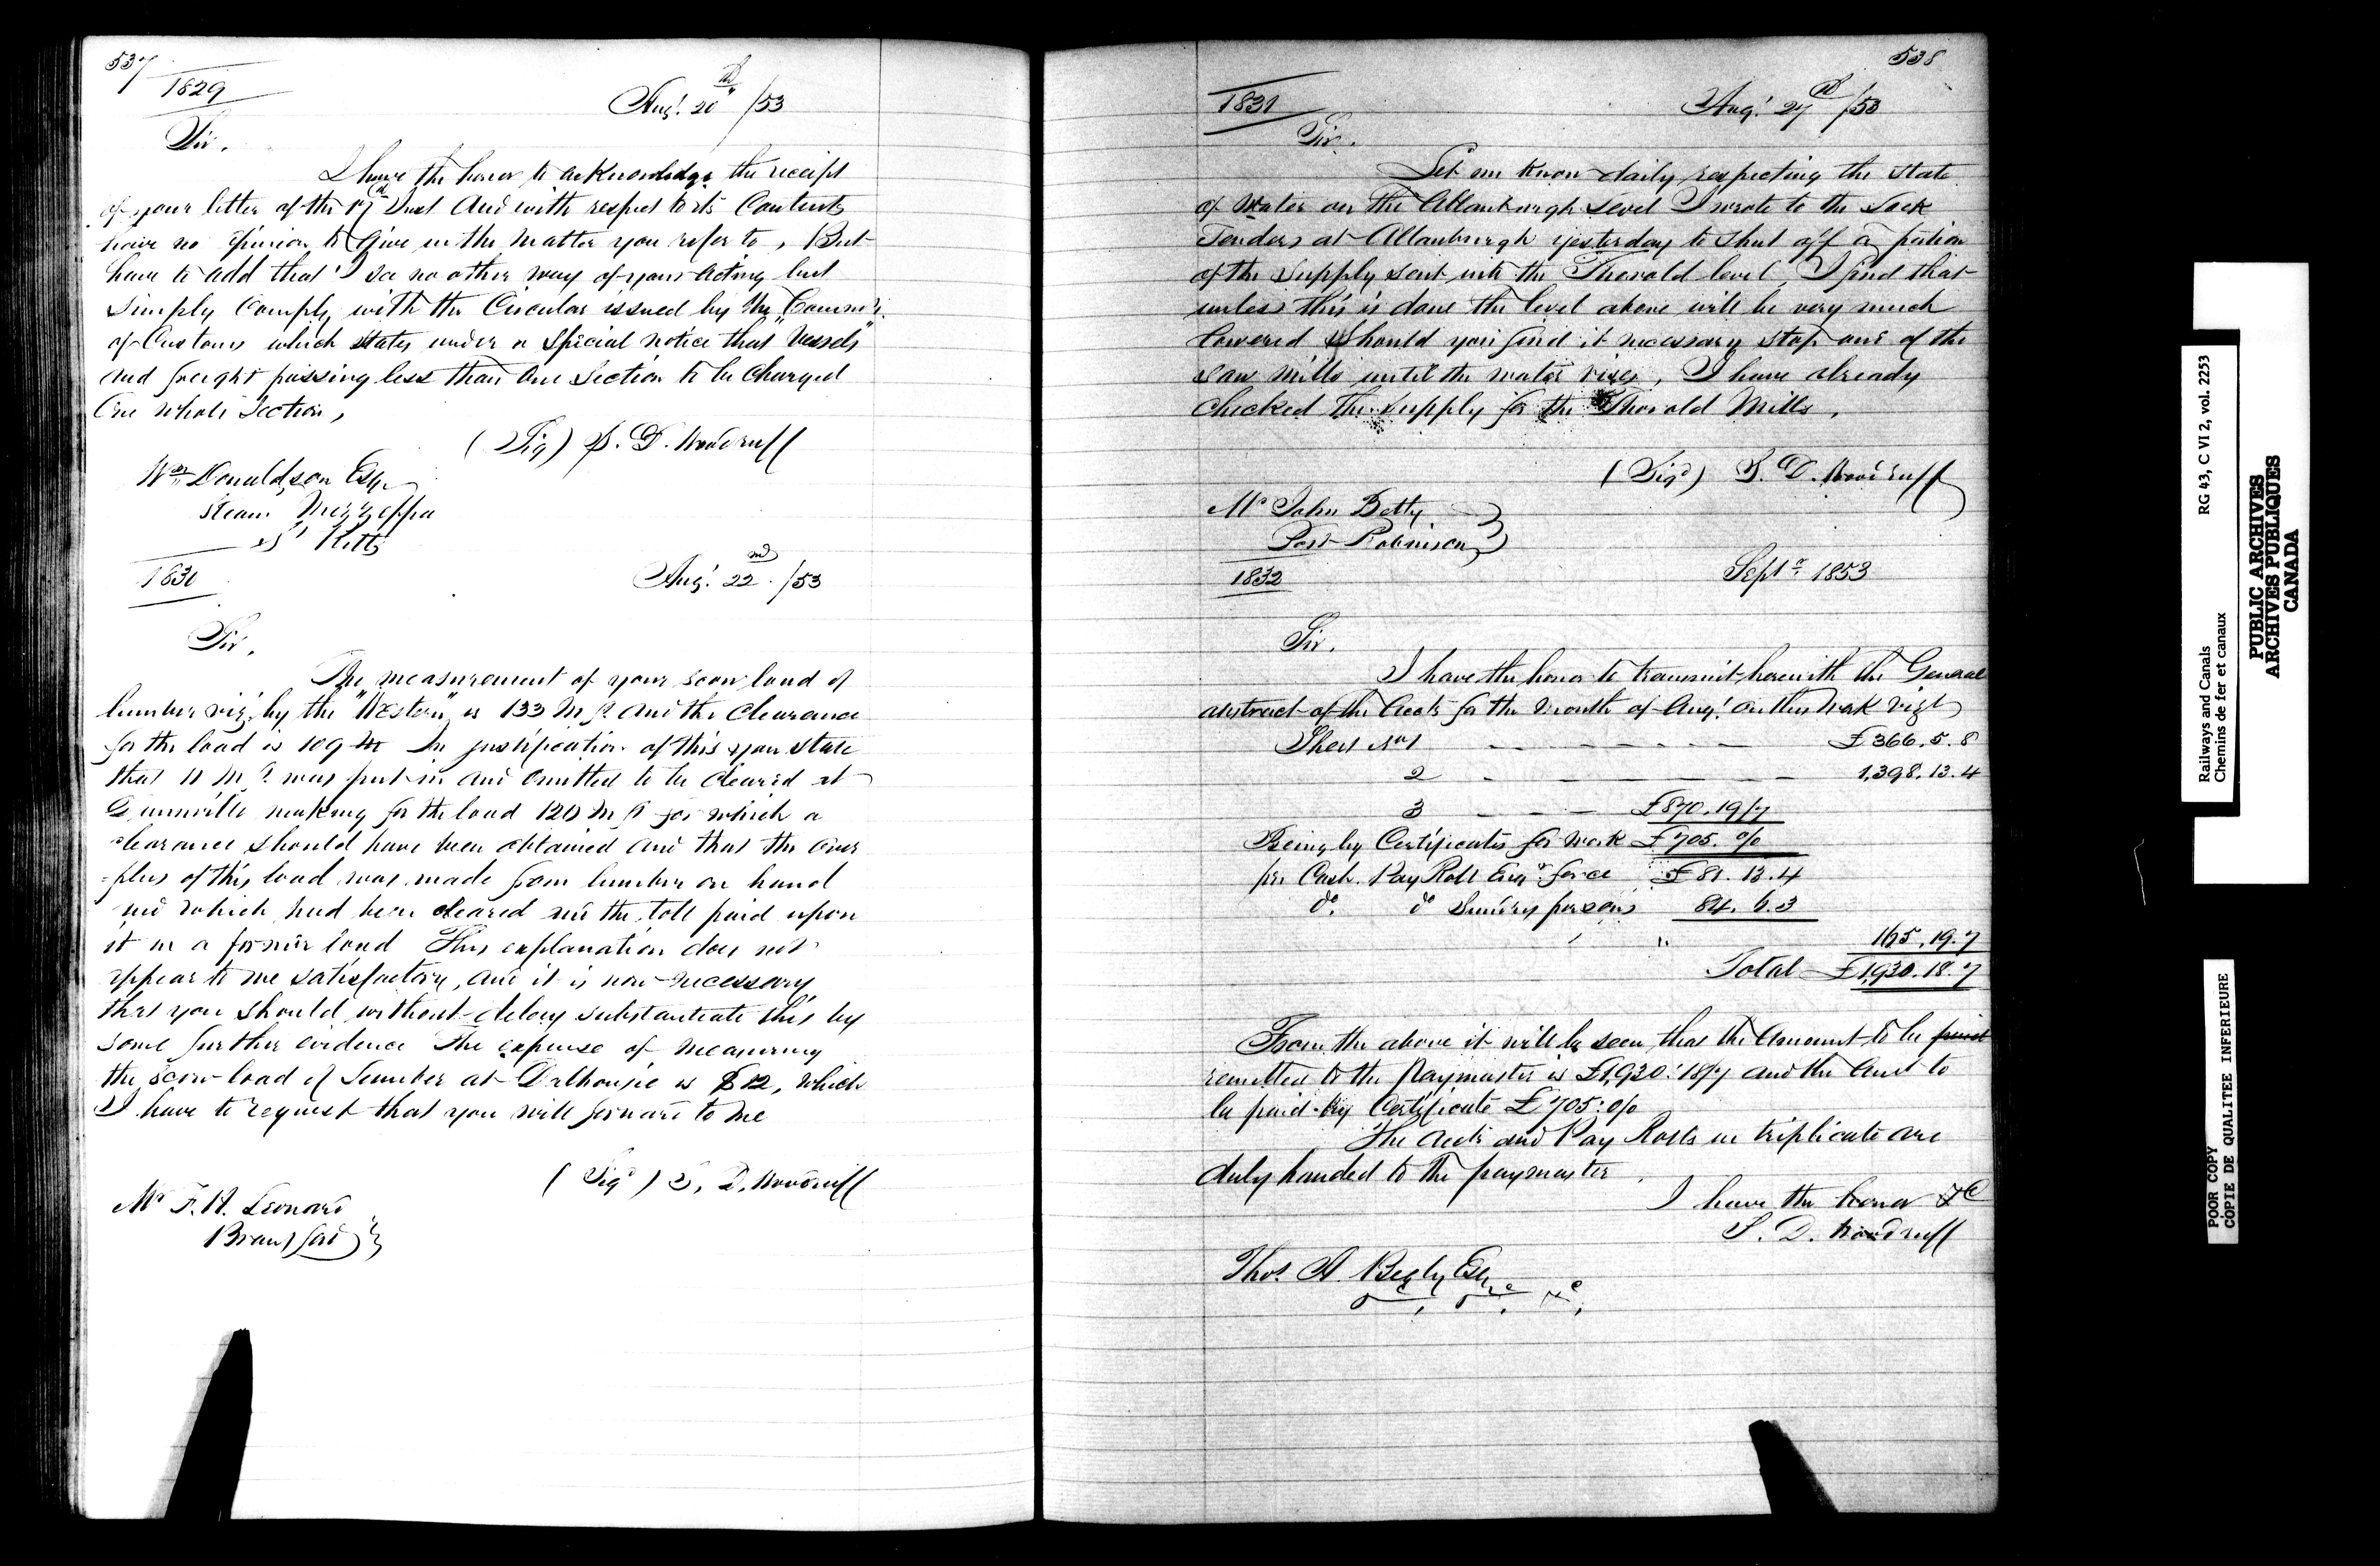 537
1829
Augt. 20th /53
Sir,
I have the honor to acknowledge the receipt
of your letter of the 17th Inst And with respect to its Contents
have no opinion to Give in the matter you refer to, But
have to add that I see no other way of your Acting but
Simply Comply with the Circular issued by the Commrs.
of Customs which States under a Special notice that "Vessels"
and freight passing less than One Section to be Charged
One whole Section,
(Sig) S. D. Woodruff
Wm Donaldson Esqr
Steam Mezzeppa
St Kitts
1830
Augt. 22nd. /53
Sir,
The measurement of your scow load of
lumber viz, by the "Western" is 133 M ft. and the Clearance
for the load is 109 M In justification of this you State
that 11 M ft. was put in and omitted to be Cleared at
Dunnville making for the load 120 M ft for which a
clearance should have been obtained and that the over
=plus of this load was made from lumber on hand
and which had been cleared and the toll paid upon
it in a former load This explanation does not
appear to me satisfactory, and it is now necessary
that you should without delay substantiate this by
some further evidence The expense of Measuring
the scow load of Lumber at Dalhousie is $12, which
I have to request that you will forward to me
(Sigd) S. D. Woodruff
Mr F. H. Leonard
Brantford
538
1831
Augt. 27th /53
Sir.
Let me know daily respecting the State
of Water on the Allanburgh Level I wrote to the Lock
Tenders at Allanburgh yesterday to Shut off a portion
of the Supply sent into the Thorold level, I find that
unless this is done the level above will be very much
lowered Should you find it necessary Stop one of the
Saw Mills until the water rises, I have already
Checked the Supply for the Thorold Mills,
(Sigd) S. D. Woodruff
Mr John Betty
Port Robinson
1832
Septr. 1853
Sir,
I have the honor to transmit herewith the General
abstract of the Accts for the Month of Augt. on this Work vizt
Sheet No 1 £366. 5. 8
2 1,398. 13. 4
3 £870. 19/7
Being by Certificates for Work £705. 0/0
per Cash. Pay Roll Engrs. force £81. 13. 4
do. do Sundry persons 84. 6. 3
165. 19. 7
Total £1,930. 18. 7
From the above it will be seen that the Amount to be paid
remitted to the Paymaster is £1,930: 18/7 and the Amt to
be paid by Certificate £705: 0/0
The Accts and Pay Rolls in triplicate are
duly handed to the paymaster,
I have the honor &c
S. D. Woodruff
Thos. A. Begly Esqr
&c, &c, &c,
Railways and Canals RG 43, C VI 2, vol. 2253
Chemins de fer et canaux
PUBLIC ARCHIVES
ARCHIVES PUBLIQUES
CANADA
POOR COPY
COPIE DE QUALITEE INFERIEURE